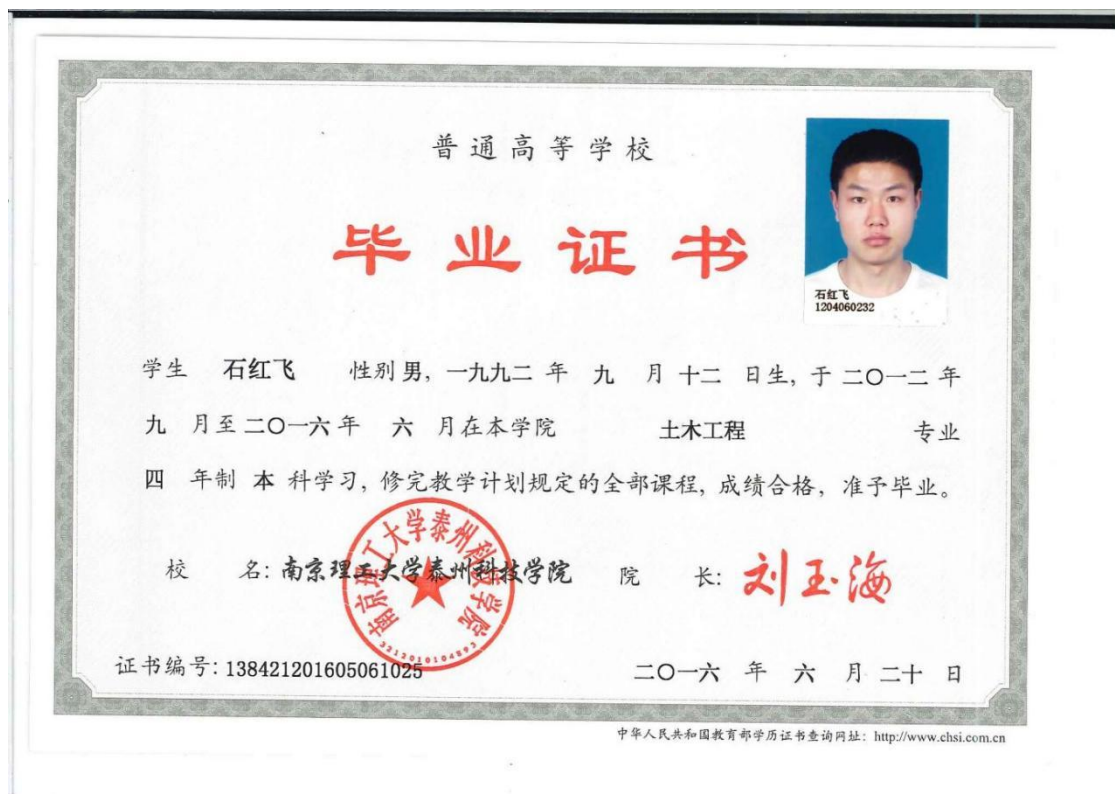 普通高等学校
毕业证书
石红飞
1204060232
学生 石红飞 性别 男, 一九九二 年 九 月 十二 日生, 于 二〇一二 年
九 月至 二〇一六 年 六 月在本学院 土木工程 专业
四 年制 本 科学习, 修完教学计划规定的全部课程, 成绩合格, 准予毕业。
校 名: 南京理工大学泰州科技学院 院 长: 刘玉海
南京理工大学泰州科技学院
3212010104893
证书编号: 138421201605061025 二〇一六 年 六 月 二十 日
中华人民共和国教育部学历证书查询网址: http://www.chsi.com.cn